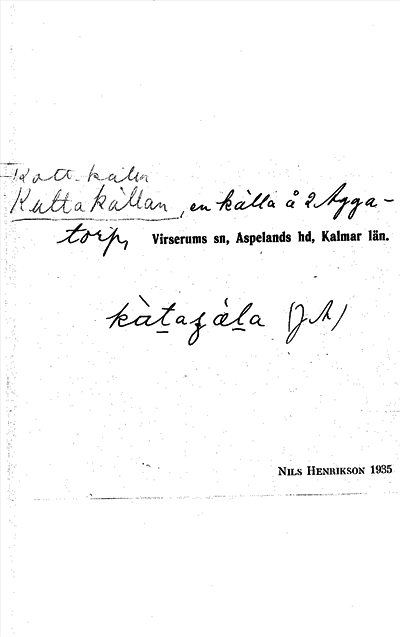 Katt-källn
Kattakällan, en källa å 2 Agga-
torp, Virserums sn, Aspelands hd, Kalmar län.
kàtaɟála (J A)
NILS HENRIKSON 1935